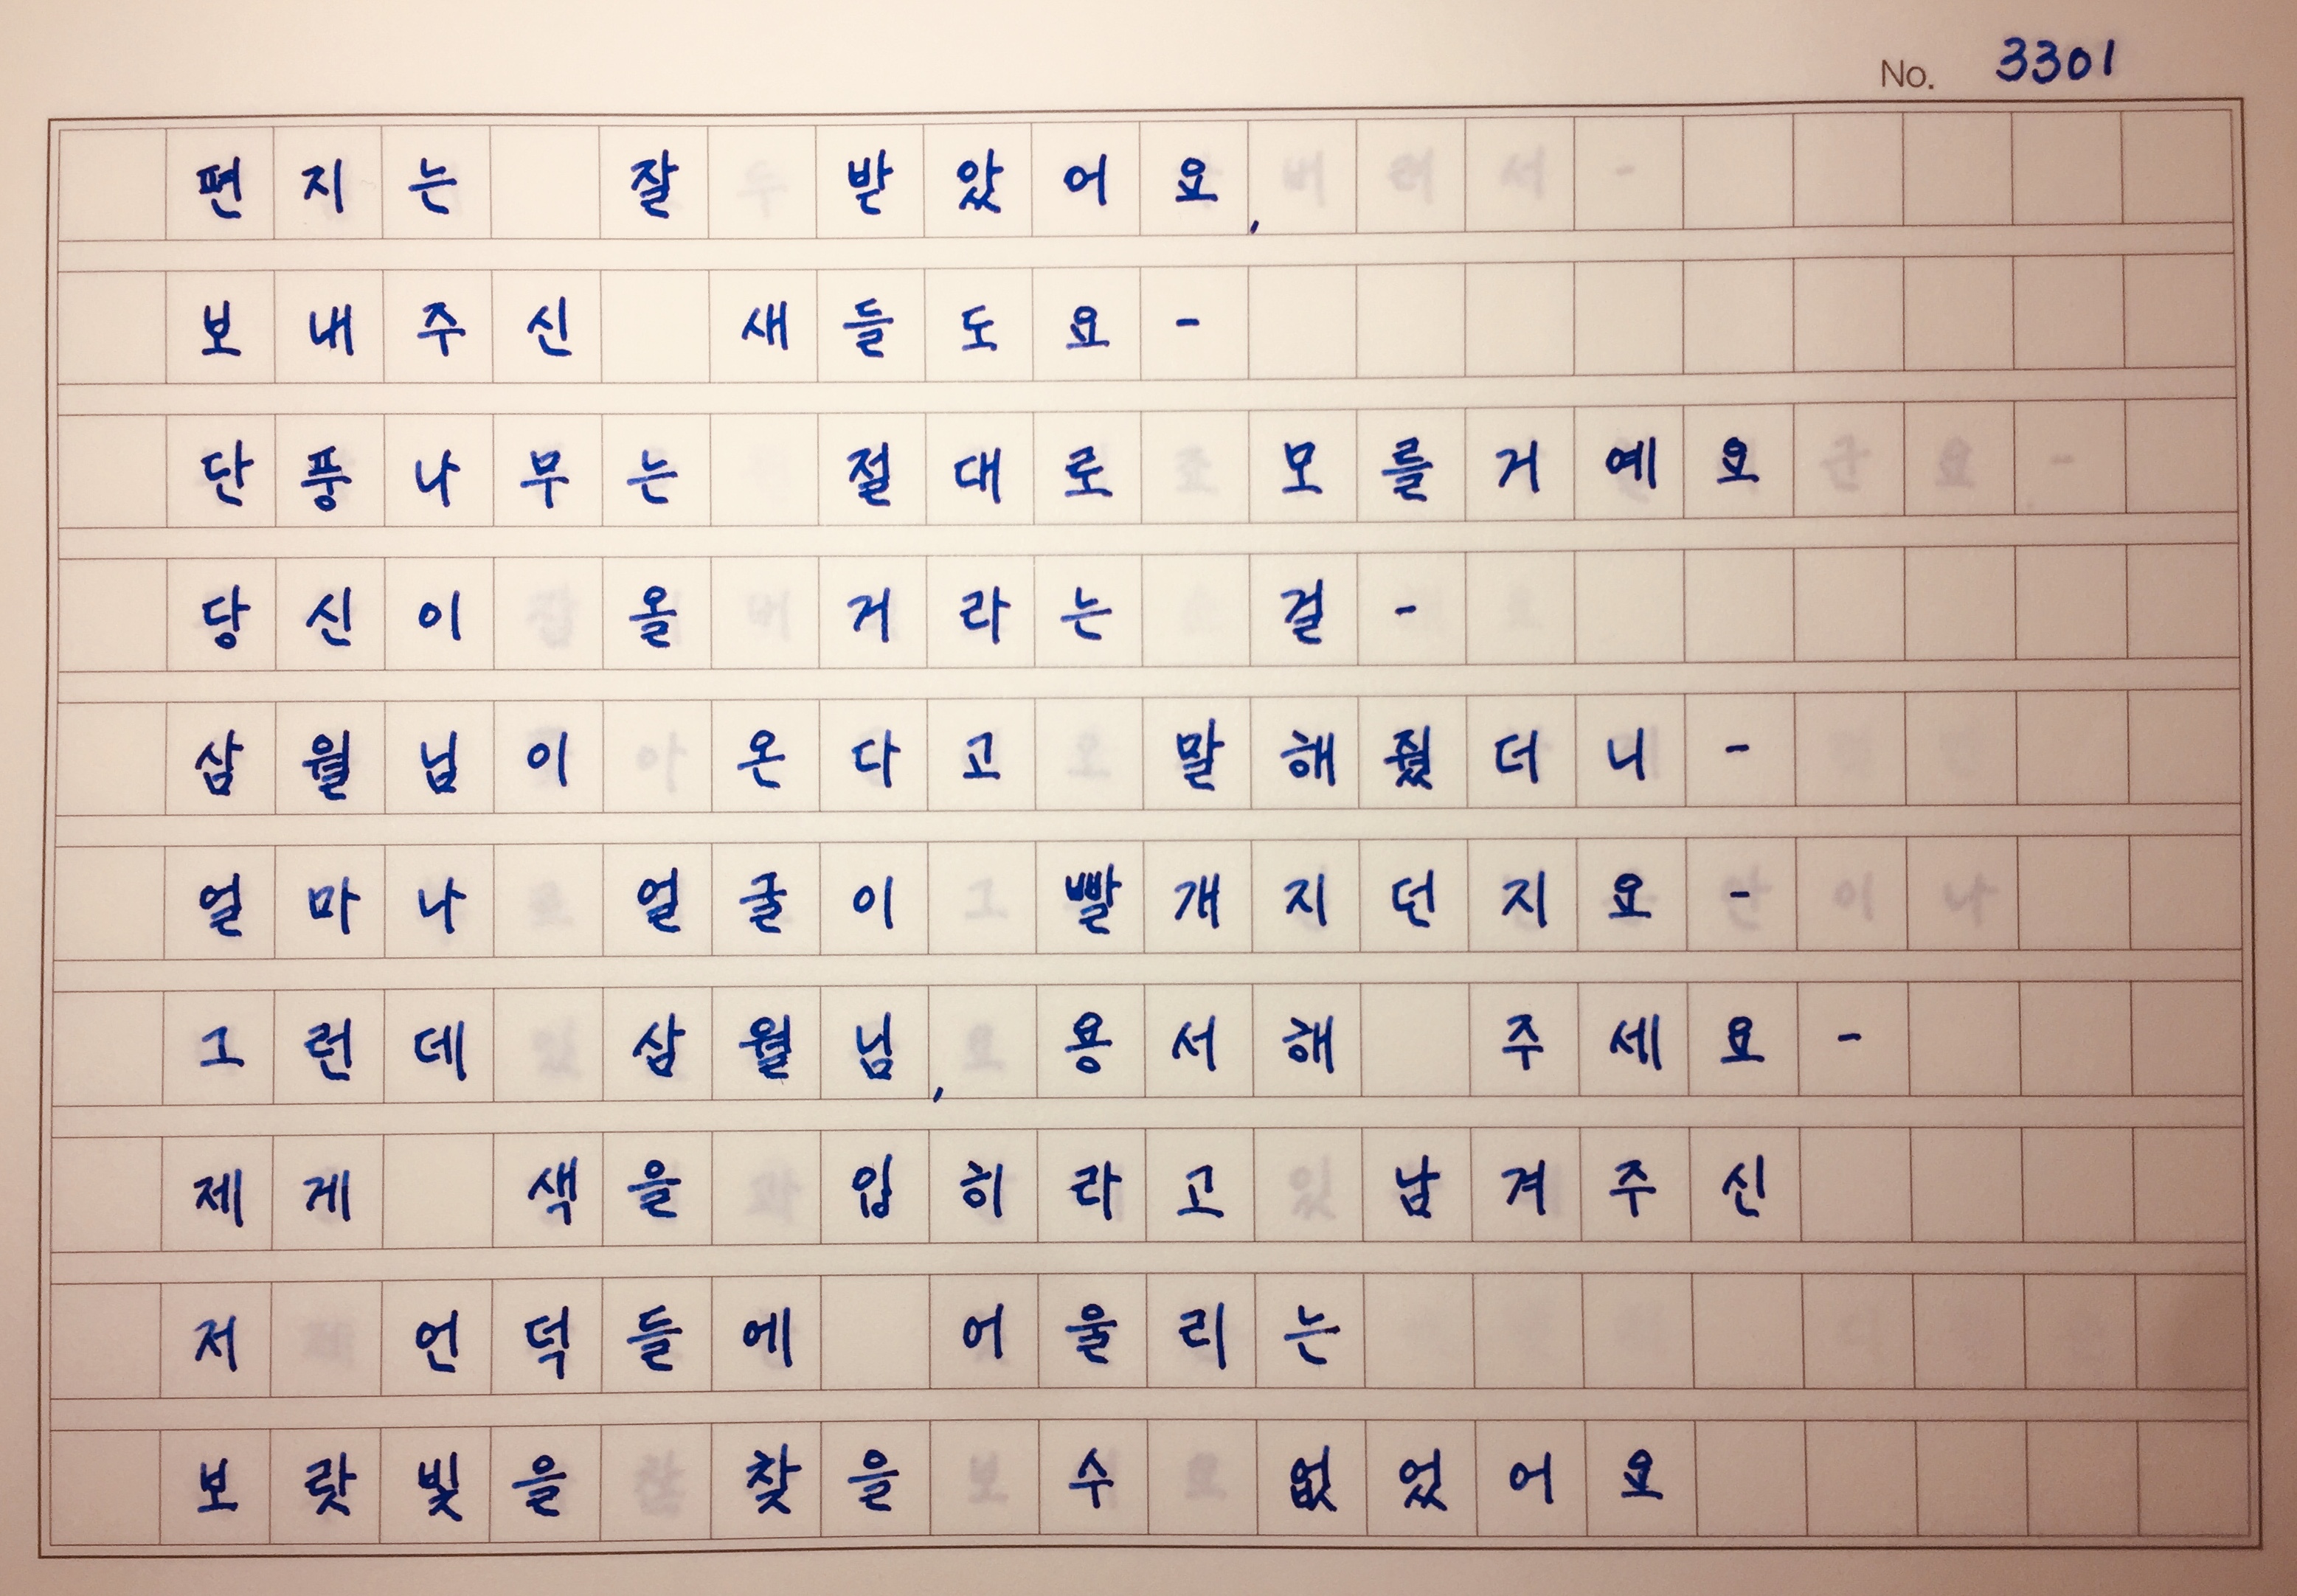 No. 3301
편지는 잘 받았어요,
보내주신 새들도요-
단풍나무는 절대로 모를거예요
당신이 올 거라는 걸-
삼월님이 온다고 말해줬더니-
얼마나 얼굴이 빨개지던지요-
그런데 삼월님, 용서해 주세요-
제게 색을 입히라고 남겨주신
저 언덕들에 어울리는
보랏빛을 찾을 수 없었어요